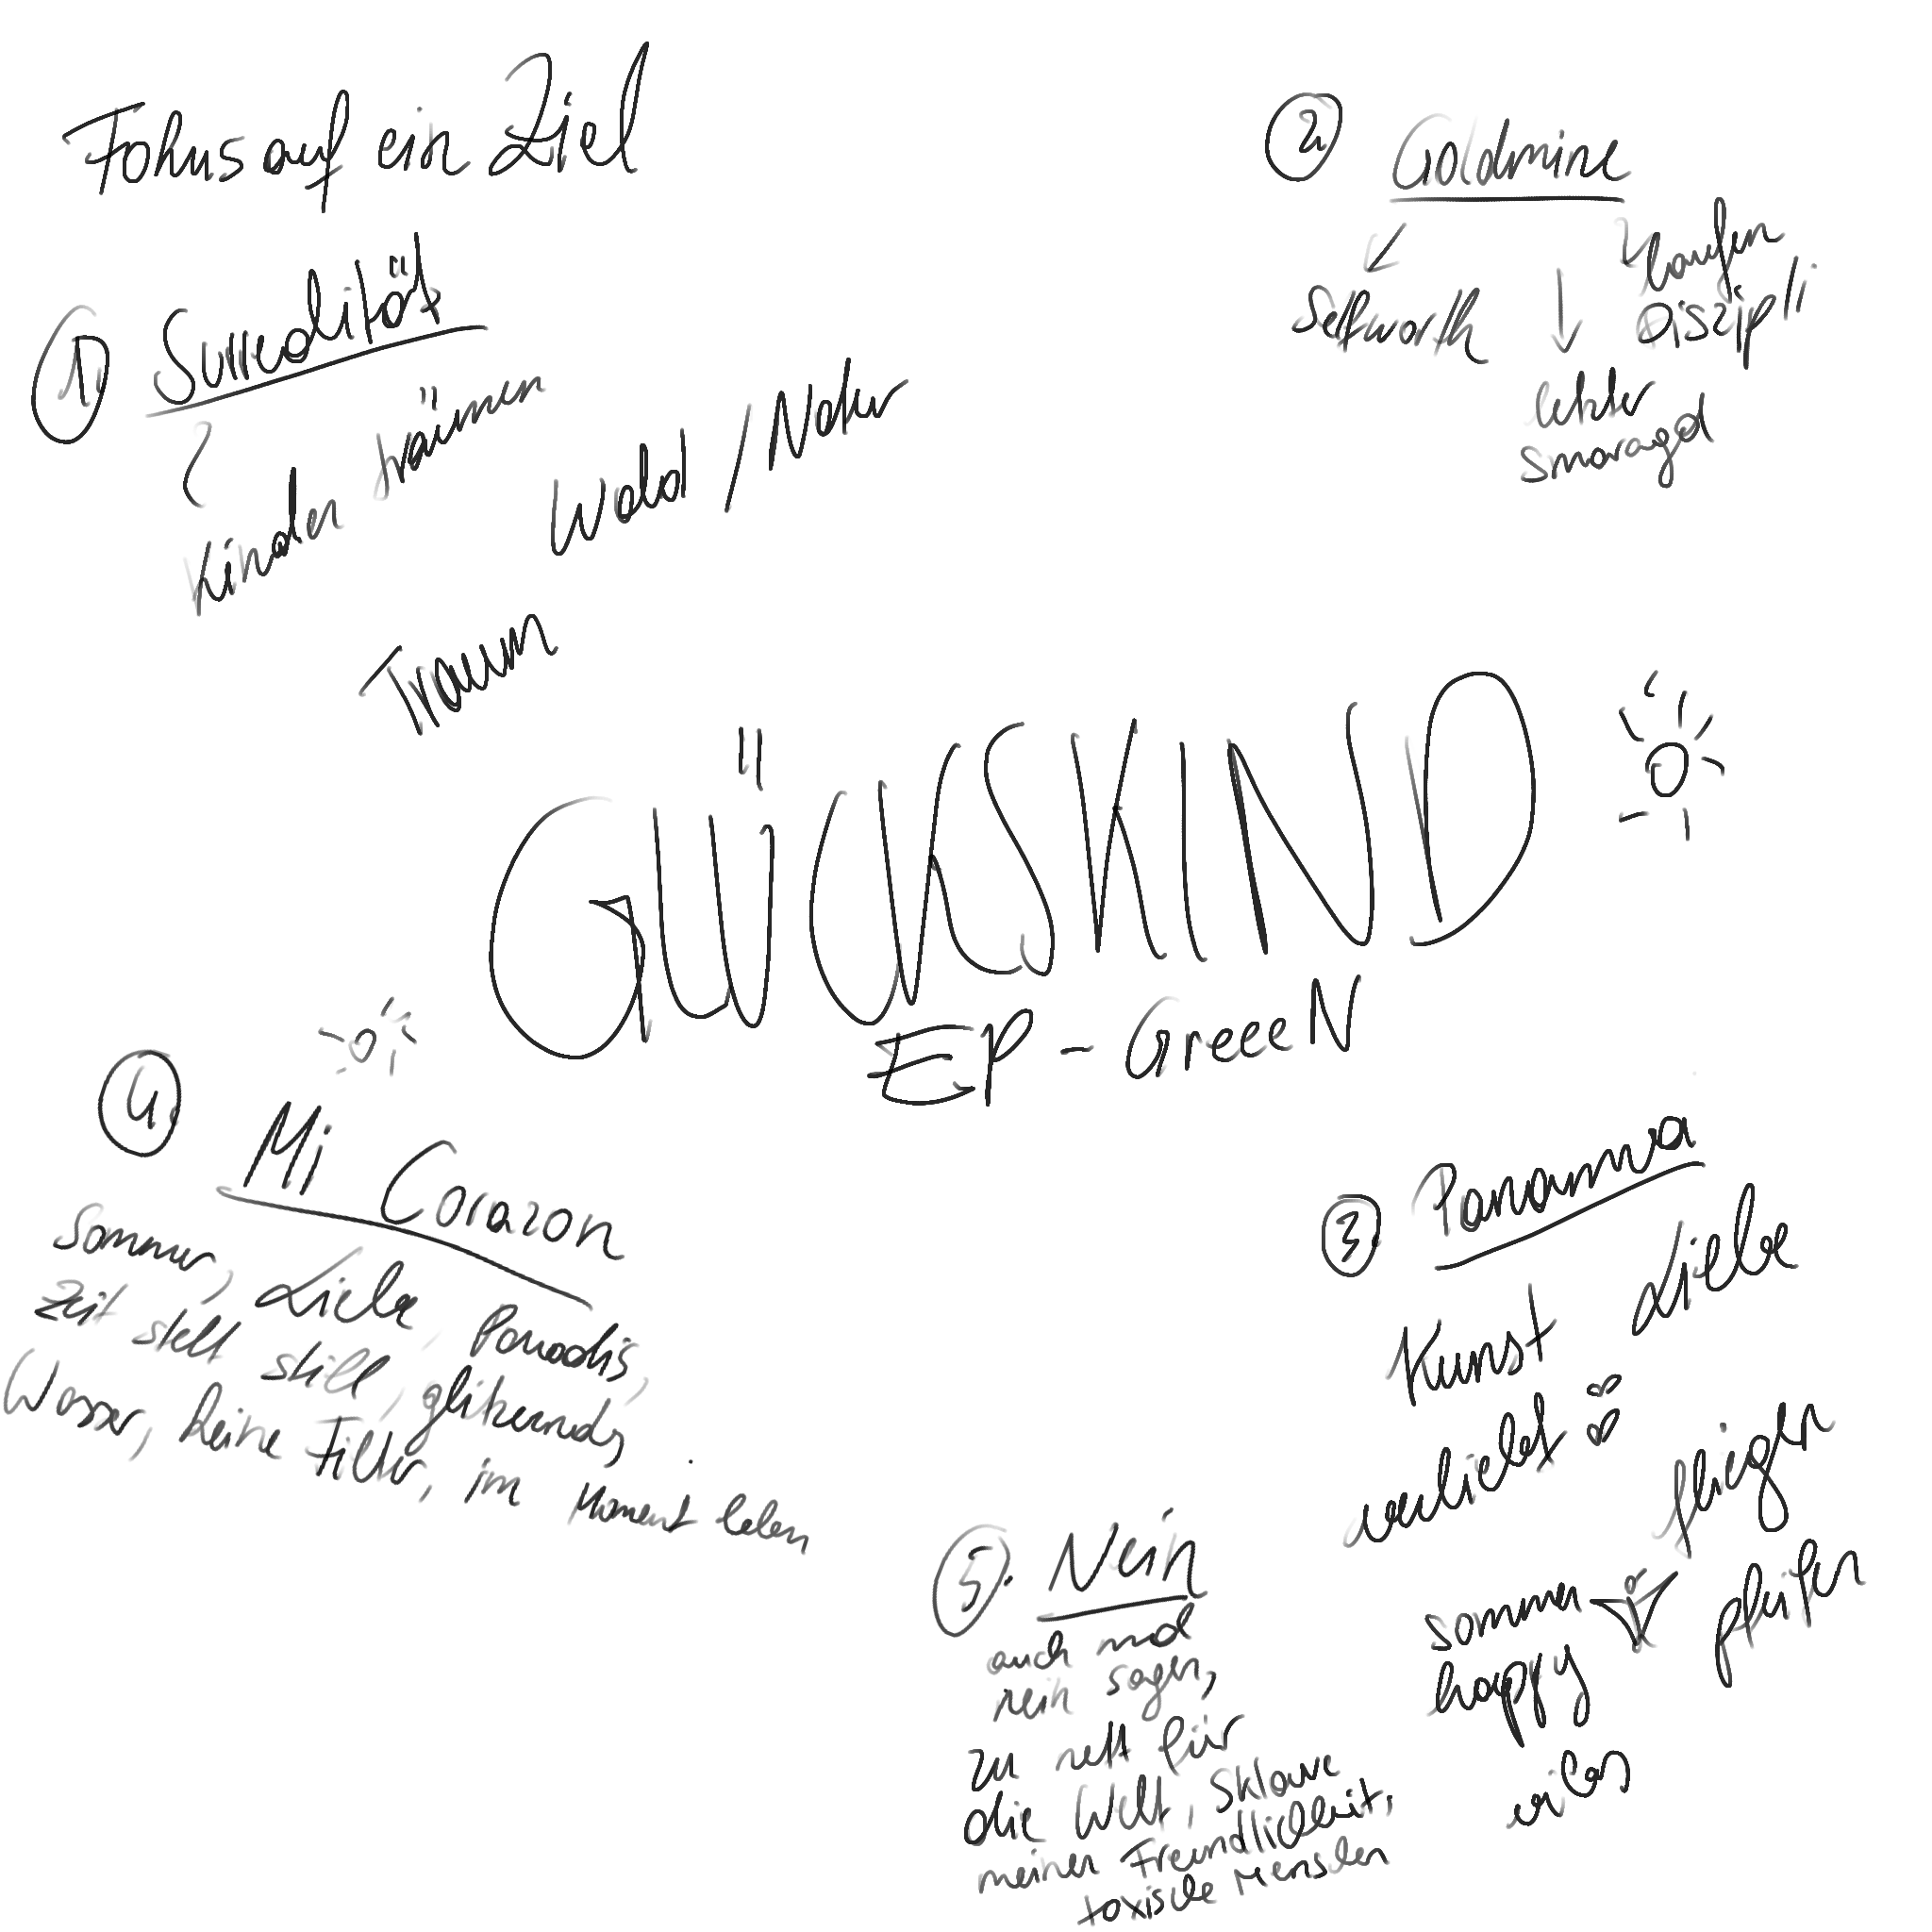 Fokus auf ein Ziel
① Surrealität
Kinder träumen
Wald / Natur
Traum
② Goldmine
Selfworth
letzter
smaragd
laufen
Diszipli
GLÜCKSKIND
EP - GreeeN
④
Mi Corazon
Sommer, Liebe, Paradis,
Zeit stell still, glitzernds
Wasser, keine Filter, im Moment leben
③ Panama
Kunst Liebe
verliebt
fliegen
pfeifen
sommer
happy
vibes
5. Nein
auch mal
nein sagen,
zu nett für
die Welt, Sklave
meiner Freundlichkeit,
toxische Menschen